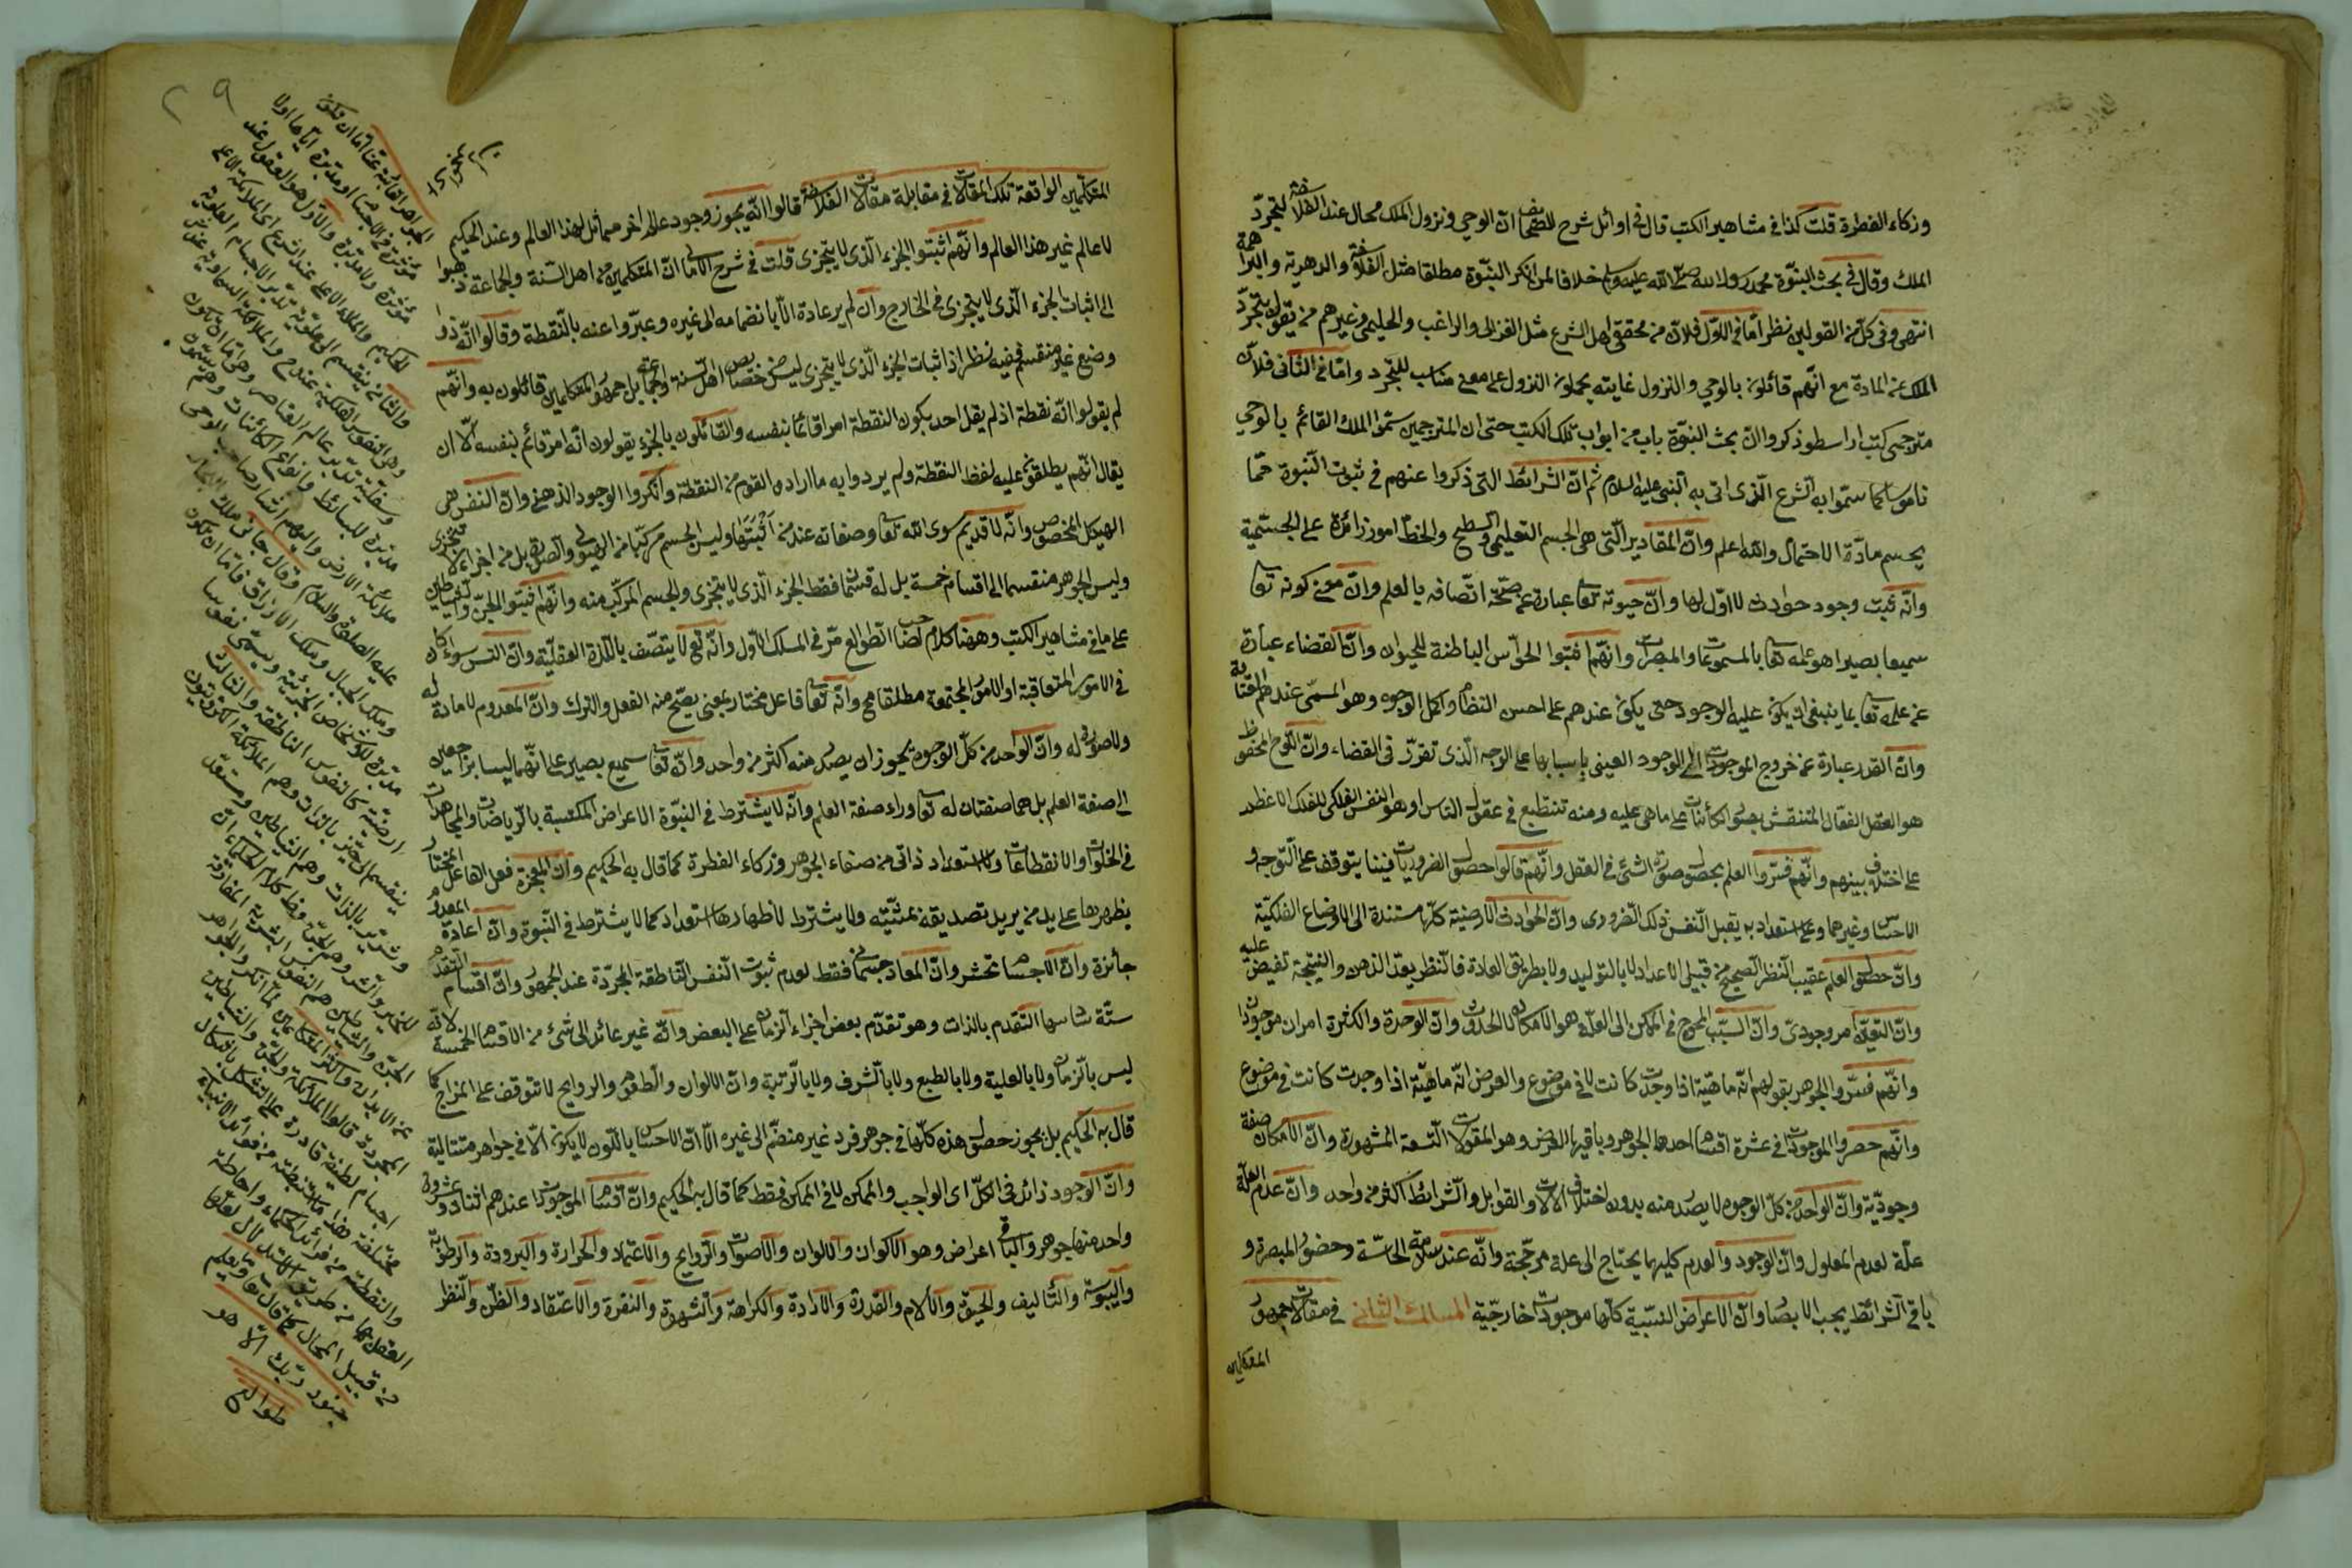 وزكاء الفطرة قلت كذا في مشاهير الكتب قال في اوائل شرح الصحائف ان الوحي ونزول الملك محال عند الفلاسفة لتجرد
الملك وقال في بحث النبوة محمد رسول الله صلى الله عليه وسلم خلافا لمن انكر النبوة مطلقا مثل الفلاسفة والدهرية والبراهمة
انتهى وفي كل من القولين نظر اما في الاول فلان من محققي اهل الشرع مثل الغزالي والراغب والحليمي وغيرهم من يقول بتجرد
الملك عن المادة مع انهم قائلون بالوحي والنزول غايته يحملون النزول على معنى مناسب للتجرد واما في الثاني فلان
مترجمي كتب ارسطو ذكروا ان بحث النبوة باب من ابواب تلك الكتب حتى ان المترجمين سموا الملك القائم بالوحي
ناموسا كما سموا به الشرع الذي اتى به النبي عليه السلام ثم ان الشرائط التي ذكروا عنهم في ثبوت النبوة مما
يحسم مادة الاحتمال والله اعلم وان المقادير التي هي الجسم التعليمي والسطح والخط امور زائدة على الجسمية
وانه ثبت وجود حوادث لا اول لها وان حيوته تعا عبارة عن صحة اتصافه بالعلم وان معنى كونه تعا
سميعا بصيرا هو علمه تعا بالمسموعات والمبصرات وانهم اثبتوا الحواس الباطنة للحيوان وان القضاء عبارة
عن علمه تعا بما ينبغي ان يكون عليه الوجود حتى يكون عندهم على احسن النظام واكمل الوجوه وهو المسمى عندهم بالعناية
وان القدر عبارة عن خروج الموجودات الى الوجود العيني باسبابها على الوجه الذي تقرر في القضاء وان اللوح المحفوظ
هو العقل الفعال المنتقش بصور الكائنات على ما هي عليه ومنه تنتطبع في عقول الناس او هو النفس الفلكي للفلك الاعظم
على اختلاف بينهم وانهم فسروا العلم بحصول صورة الشئ في العقل وانهم قالوا حصول الضروريات فينا يتوقف على التوجه و
الاحساس وغيرهما وعلى استعداد به يقبل النفس ذلك الضروري وان الحوادث الارضية كلها مستندة الى الاوضاع الفلكية
وان حصول العلم عقيب النظر الصحيح من قبيل الاعداد لا بالتوليد ولا بطريق العادة فالنظر يعد الذهن والنتيجة تفيض عليه
وان التعين امر وجودي وان السبب المحوج في الممكن الى العلة هو الامكان لا الحدوث وان الوحدة والكثرة امران موجودان
وانهم فسروا الجوهر بقولهم انه ماهية اذا وجدت كانت لا في موضوع والعرض انه ماهية اذا وجدت كانت في موضوع
وانهم حصروا الموجودات في عشرة اقسام احدها الجوهر وباقيها العرض وهو المقولات التسعة المشهورة وان الامكان صفة
وجودية وان الواحد من كل الوجوه لا يصدر منه بدون اختلاف الالات والقوابل والشرائط اكثر من واحد وان عدم العلة
علة لعدم المعلول وان الوجود والعدم كليهما يحتاج الى علة مرجحة وانه عند سلامة الحاسة وحضور المبصرة و
باقي الشرائط يجب الابصار وان الاعراض النسبية كلها موجودات خارجية المسلك الثاني في مقالات جمهور
المتكلمين
المتكلمين الواقعة تلك المقالات في مقابلة مقالات الفلاسفة قالوا انه يجوز وجود عالم اخر مماثل لهذا العالم وعند الحكيم
لا عالم غير هذا العالم وانهم اثبتوا الجزء الذي لا يتجزى قلت في شرح الامالي ان المتكلمين من اهل السنة والجماعة ذهبوا
الى اثبات الجزء الذي لا يتجزى في الخارج وان لم ير عادة الا بانضمامه الى غيره وعبروا عنه بالنقطة وقالوا انه ذو
وضع غير منقسم ففيه نظر اذ اثبات الجزء الذي لا يتجزى ليس من خصائص اهل السنة والجماعة بل جمهور المتكلمين قائلون به وانهم
لم يقولوا انه نقطة اذ لم يقل احد بكون النقطة امرا قائما بنفسه والقائلون بالجزء يقولون انه امر قائم بنفسه الا ان
يقال انهم يطلقون عليه لفظ النقطة ولم يردوا به ما اراده القوم من النقطة وانكروا الوجود الذهني وان النفس هي
الهيكل المخصوص وانه لا قديم سوى الله تعا وصفاته عند من اثبتها وليس الجسم مركبا من الهيولى والصورة بل من اجزاء لا تتجزى
وليس الجوهر منقسما الى اقسام خمسة بل له قسمان فقط الجزء الذي لا يتجزى والجسم المركب منه وانهم اثبتوا الجن والشياطين
على ما في مشاهير الكتب وههنا كلام لصاحب الطوالع مر في المسلك الاول وانه تع لا يتصف باللذة العقلية وان التس سواء كان
في الامور المتعاقبة او الامور المجتمعة مطلقا مح وانه تعا فاعل مختار بمعنى يصح منه الفعل والترك وان المعدوم لا مادة له
ولا صورة له وان الواحد من كل الوجوه يجوز ان يصدر منه اكثر من واحد وانه تعا سميع بصير على انهما ليسا براجعين
الى صفة العلم بل هما صفتان له تعا وراء صفة العلم وانه لا يشترط في النبوة الاعراض المكتسبة بالرياضات والمجاهدات
في الخلوات والانقطاعات ولا استعداد ذاتي من صفاء الجوهر وزكاء الفطرة كما قال به الحكيم وان المعجزة فعل الفاعل المختار
يظهرها على يد من يريد تصديقه بمشيته ولا يشترط لاظهارها استعداد كما لا يشترط في النبوة وان اعادة المعدوم
جائزة وان الاجسام تحشر وان المعاد جسماني فقط لعدم ثبوت النفس الناطقة المجردة عند الجمهور وان اقسام التقدم
ستة سادسها التقدم بالذات وهو تقدم بعض اجزاء الزمان على البعض وانه غير عائد الى شئ من الاقسام الخمسة لانه
ليس بالزمان ولا بالعلية ولا بالطبع ولا بالشرف ولا بالرتبة وان الالوان والطعوم والروايح لا تتوقف على المزاج كما
قال به الحكيم بل يجوز حصول هذه كلها في جوهر فرد غير منضم الى غيره الا ان الاحساس باللون لا يكون الا في جواهر متتالية
وان الوجود زائد في الكل اى الواجب والممكن لا في الممكن فقط كما قال به الحكيم وان اقسام الموجودات عندهم اثنان وعشرون
واحد منها جوهر والباقي اعراض وهو الاكوان والالوان والاصوات والروايح والاعتماد والحرارة والبرودة والرطوبة
واليبوسة والتأليف والحيوة والالام والقدرة والارادة والكراهة والشهوة والنفرة والاعتقاد والظن والنظر
الجواهر الغائبة عنا اما ان تكون
مؤثرة في الاجسام او مدبرة اياها او لا
مؤثرة ولا مدبرة والاول هو العقول عند
الحكيم والملأ الاعلى عند الشرع
والثاني ينقسم الى علوية تدبر الاجسام العلوية
وهي النفوس الفلكية عندهم والملائكة السماوية عند
وسفلية تدبر عالم العناصر وهي اما ان تكون
مدبرة للبسائط وانواع الكائنات وهم يسمون
ملائكة الارض واليهم اشار صاحب الوحي
عليه الصلوة والسلام وقال جاءني ملك البحار
وملك الجبال وملك الارزاق واما ان تكون
مدبرة للاشخاص الجزئية ويسمى نفوسا
ارضية كالنفوس الناطقة والثالث
ينقسم الى خير بالذات وهم الملائكة الكروبيون
وشرير بالذات وهم الشياطين ومستعد
للخير والشر وهم الجن وظاهر كلام الحكماء ان
الجن والشياطين هم النفوس البشرية المفارقة
عن الابدان واكثر المتكلمين لما انكروا الجواهر
المجردة قالوا الملائكة والجن والشياطين
اجسام لطيفة قادرة على التشكل باشكال
مختلفة هذا ما استنبطته من فوائد الانبياء
والتقطته من فرائد الحكماء واحاطة
العقل بها من طريق الاستدلال لعلها
من قبيل المحال كما قال تعا وما يعلم
جنود ربك الا هو
طوالع